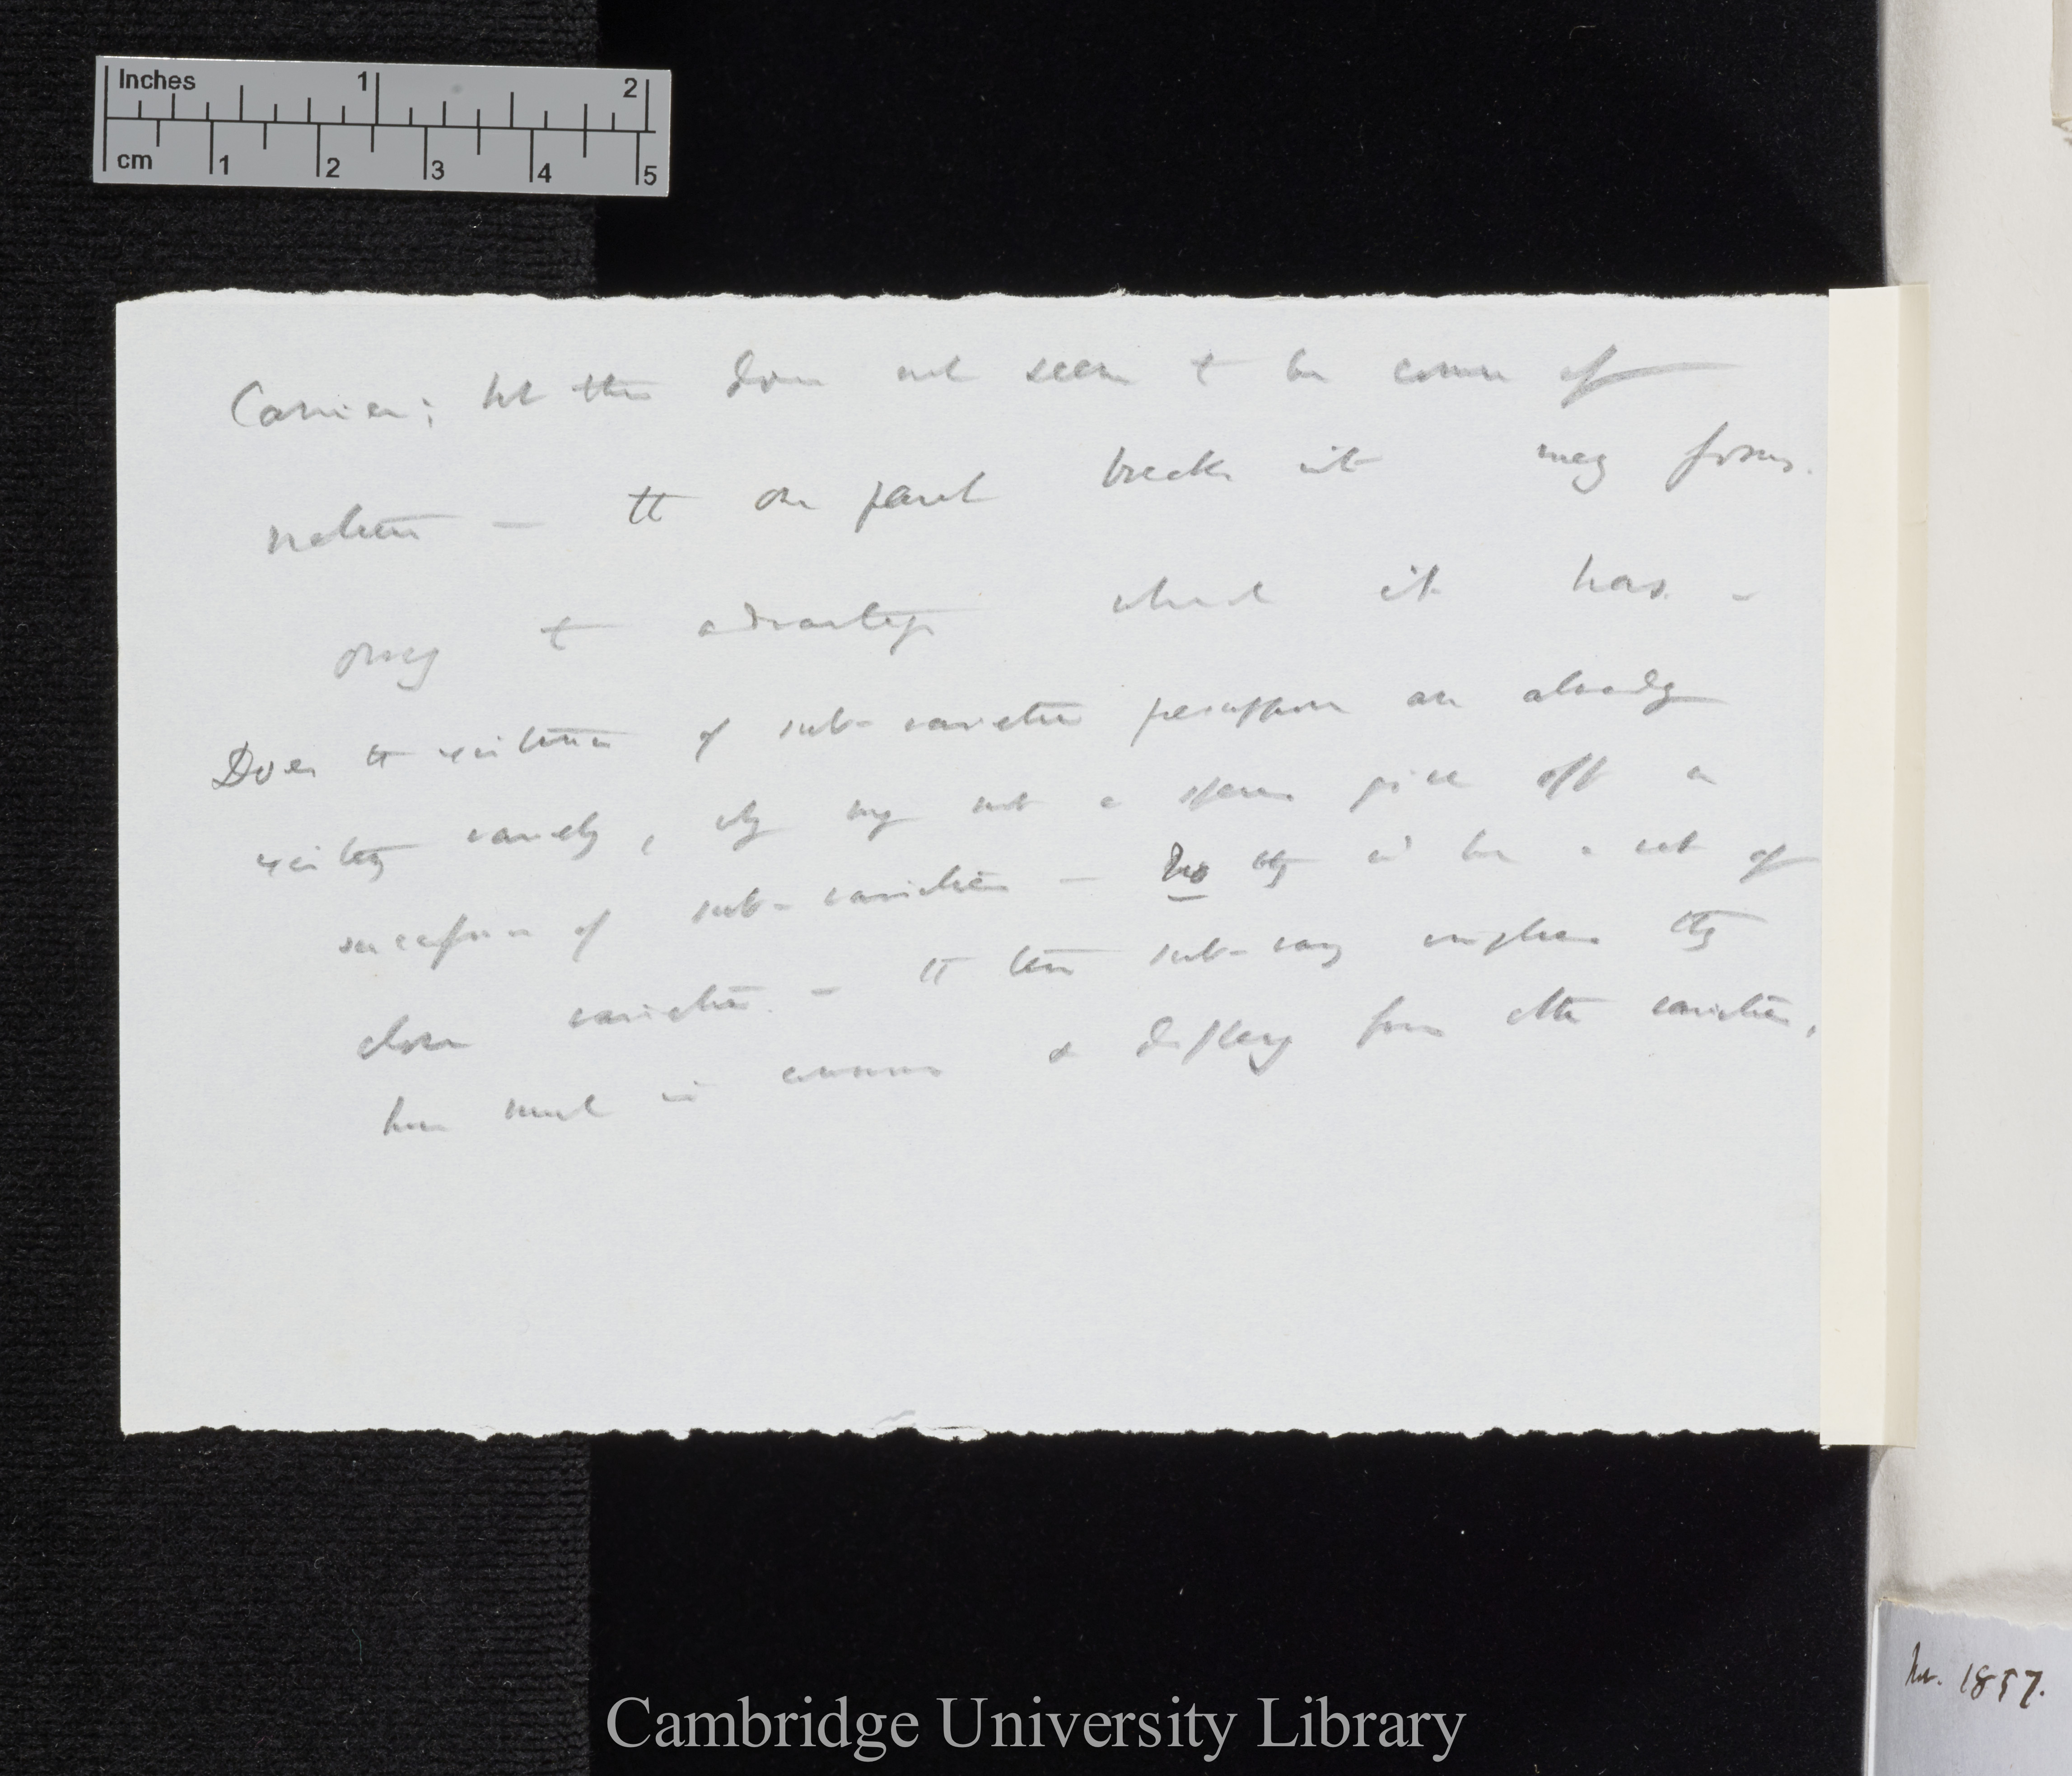 Inches 1 2
cm 1 2 3 4 5
Carrier; but this does not seem to be course of
nature — tt one part breaks it may form.
owing to advantage which it has –
Does tt existence of sub-varieties presuppose an already
existing variety, why may not a species give off a
succession of sub-varieties — No they wd be a set of
close varieties. – tt term sub-vary implies they
have much in common & differing from other varieties,
Cambridge University Library
Nov. 1857.